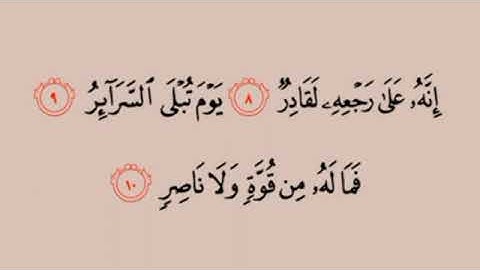 إِنَّهُۥ عَلَىٰ رَجْعِهِۦ لَقَادِرٌ ٨ يَوْمَ تُبْلَى ٱلسَّرَآئِرُ ٩
فَمَا لَهُۥ مِن قُوَّةٍ وَلَا نَاصِرٍ ١٠